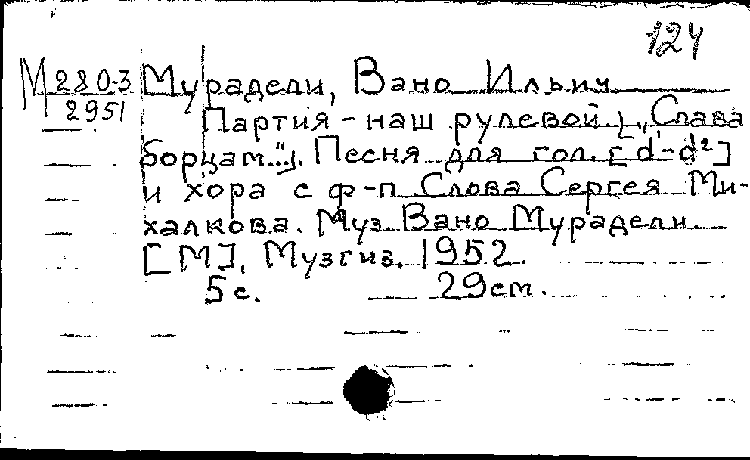 124
М 280-3
2951
Мурадели, Вано Ильич
Партия - наш рулевой [„Слава
борцам..."]. Песня для гол. [d'-d²]
и хора с ф-п Слова Сергея Ми-
халкова. Муз Вано Мурадели.
[М], Музгиз. 1952.
5 с. 29 см.